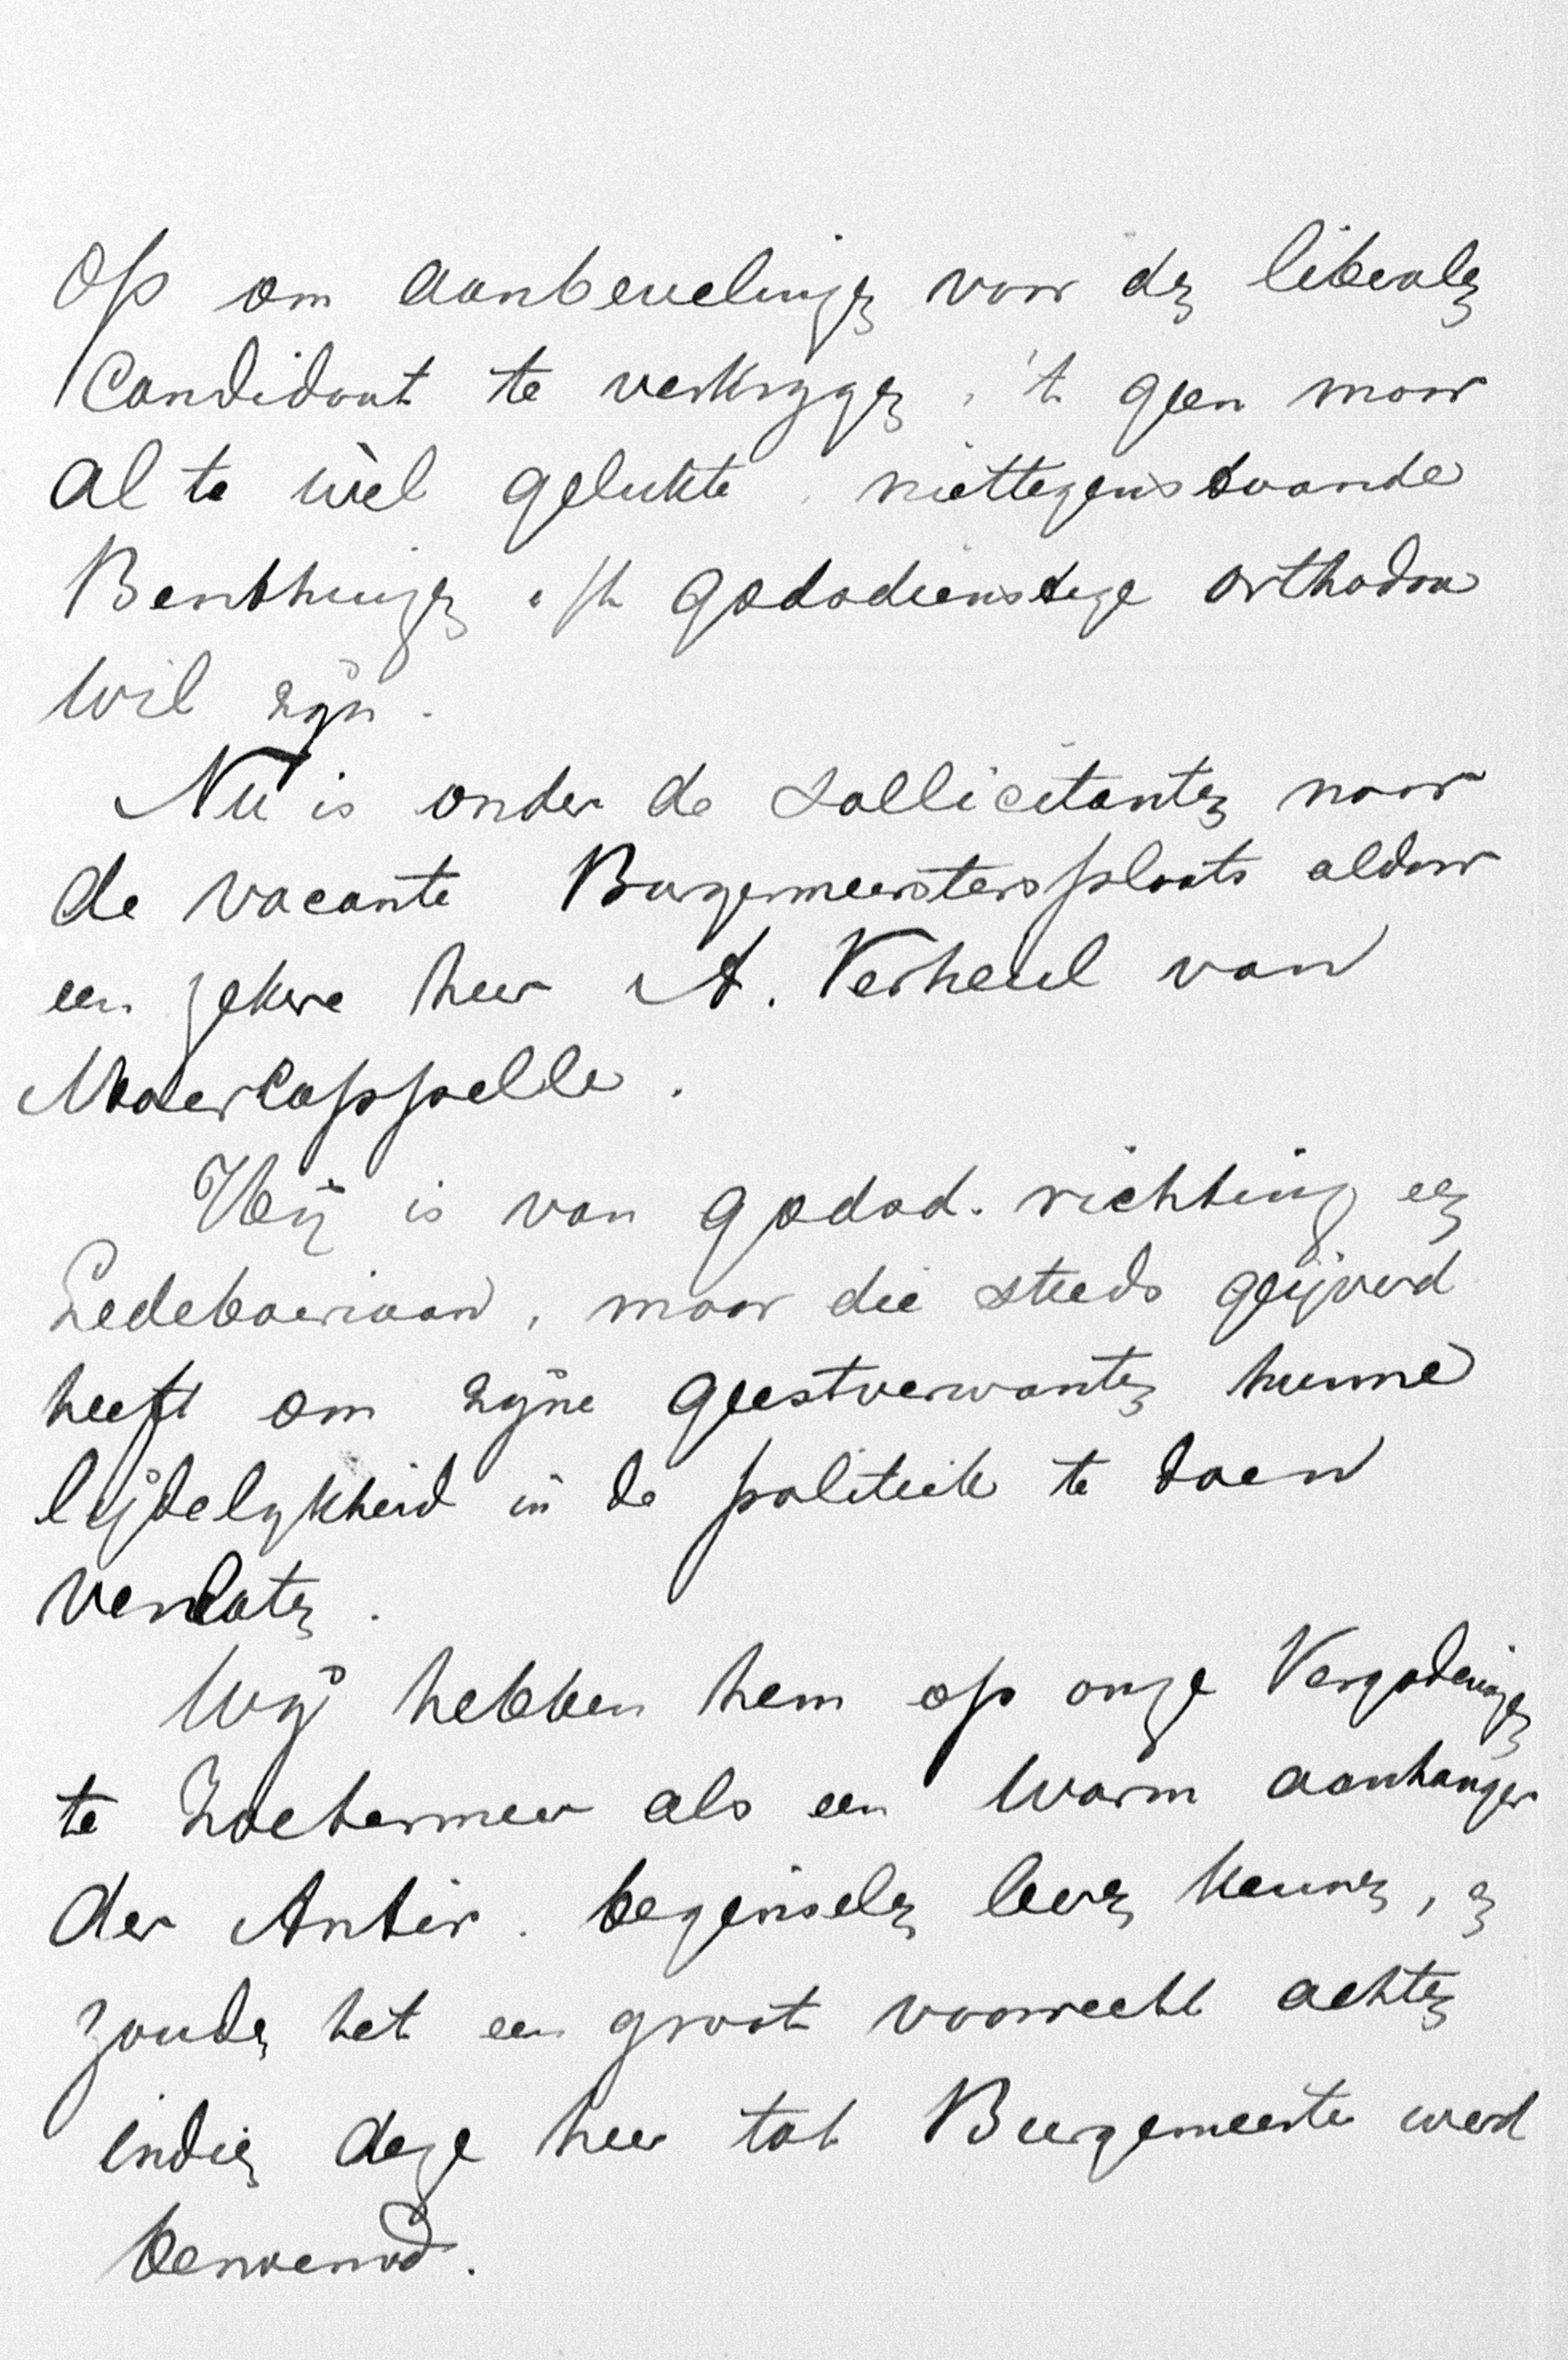 op om aanbevelingen voor den liberalen
Candidaat te verkrygen, 't geen maar
al te wèl gelukte, niettegenstaande
Benthuizen op godsdienstige orthodoxie
wil zijn.
Nu is onder de sollicitanten naar
de vacante Burgemeestersplaats aldaar
een zekere heer A. Verheul van
Moercappelle.
Hij is van godsd. richting een
Ledeboeriaan, maar die steeds geijverd
heeft om zijne geestverwanten hunne
lijdelykheid in de politiek te doen
verlaten.
Wij hebben hem op onze Vergaderingen
te Zoetermeer als een warm aanhanger
der Antir. beginselen leeren kennen, en
zouden het een groot voorrecht achten
indien deze heer tot Burgemeester werd
benoemd.